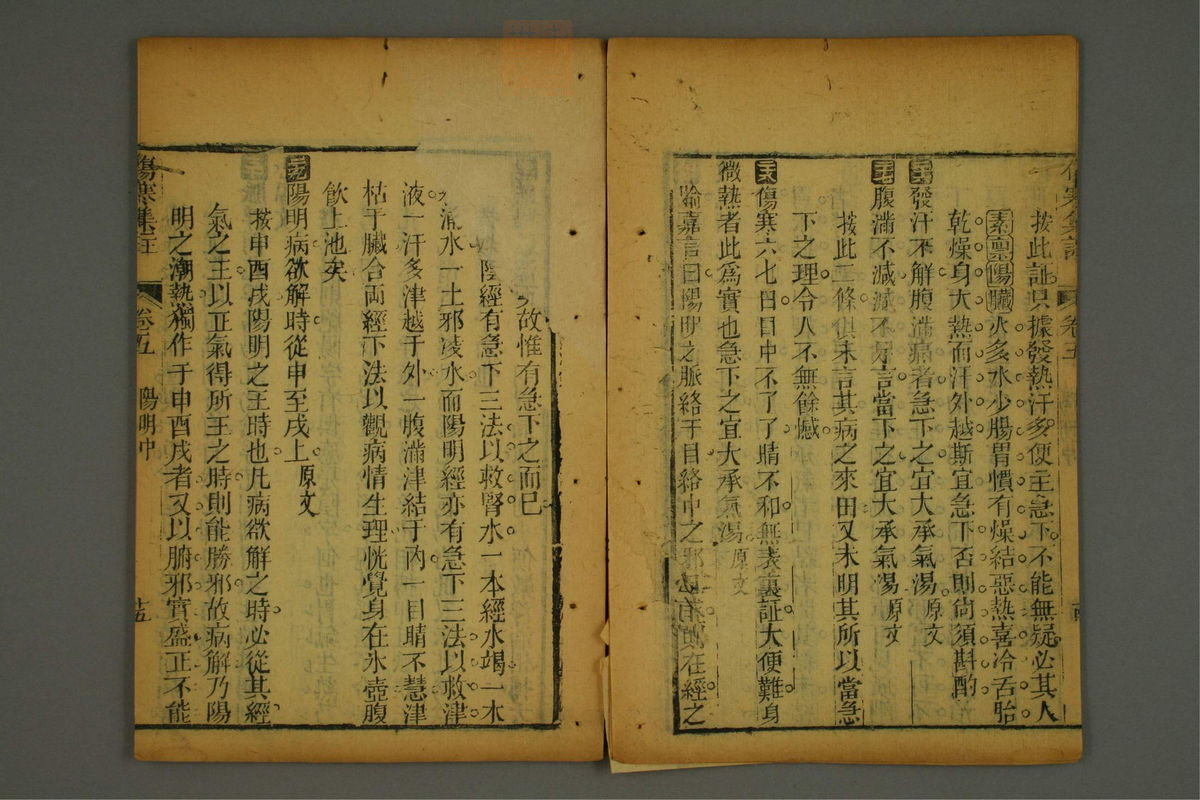 傷寒集註
卷五
按此証只據發熱汗多便主急下不能無疑必其人
素禀陽臟火多水少腸胃慣有燥結惡熱喜冷舌胎
乾燥身大熱而汗外越斯宜急下否則尚須斟酌
發汗不解腹滿痛者急下之宜大承氣湯原文
腹滿不減減不足言當下之宜大承氣湯原文
按此二條俱未言其病之來由又未明其所以當急
下之理令人不無餘憾
傷寒六七日目中不了了睛不和無表裏証大便難身
微熱者此為實也急下之宜大承氣湯原文
喻嘉言曰陽明之脈絡于目絡中之邪在經之
故惟有急下之而已
陰經有急下三法以救腎水一本經水竭一木
涌水一土邪凌水而陽明經亦有急下三法以救津
液一汗多津越于外一腹滿津結于內一目睛不慧津
枯于臟合両經下法以觀病情生理恍覺身在氷壺腹
飲上池矣
陽明病欲解時從申至戌上原文
按申酉戌陽明之王時也凡病欲解之時必從其經
氣之王以正氣得所王之時則能勝邪故病解乃陽
明之潮熱獨作于申酉戌者又以腑邪實盛正不能
傷寒集註
卷五
陽明中